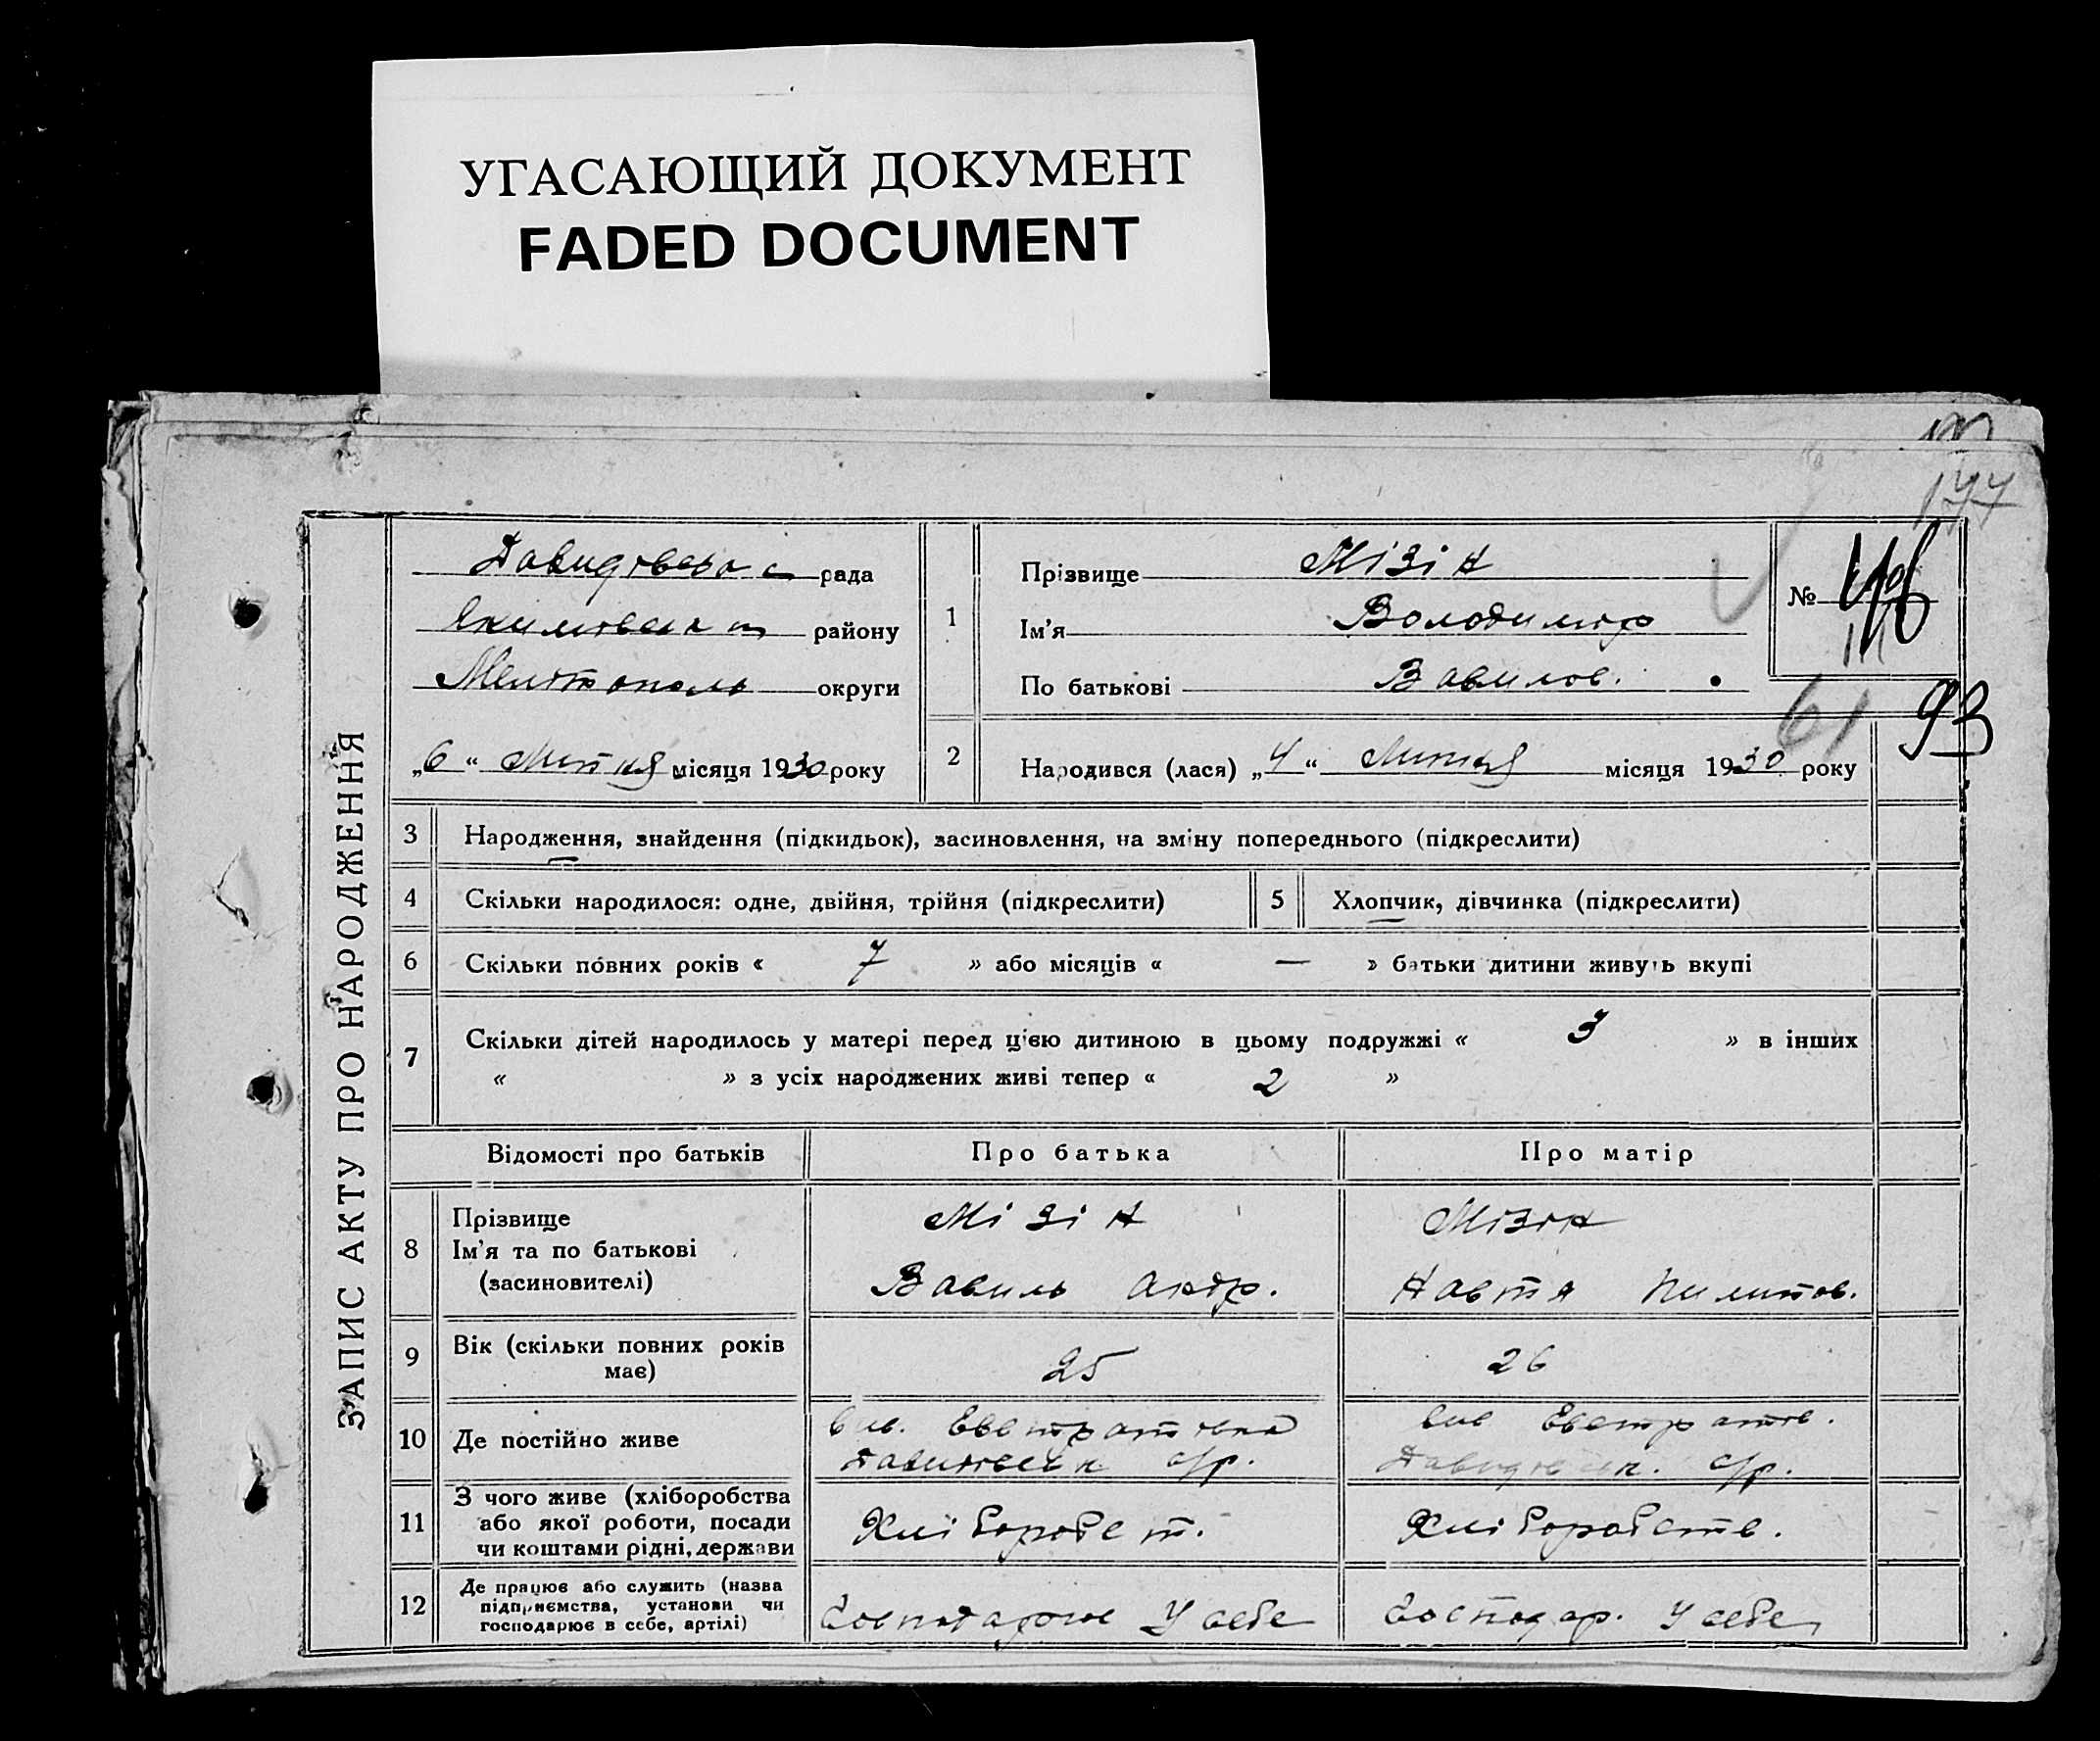 УГАСАЮЩИЙ ДОКУМЕНТ
FADED DOCUMENT
177
ЗАПИС АКТУ ПРО НАРОДЖЕННЯ
Давидовська с рада
Якимовськ района району
Мелітополь округи
„6“ Липня місяця 1930 року
1
Прізвище Мізін
Ім'я Володимир
По батькові Вавилов.
№
61 93
2 Народився (лася) „4“ Липня місяця 1930 року
3 Народження, знайдення (підкидьок), засиновлення, на зміну попереднього (підкреслити)
4 Скільки народилося: одне, двійня, трійня (підкреслити) 5 Хлопчик, дівчинка (підкреслити)
6 Скільки повних років « 7 » або місяців « — » батьки дитини живуть вкупі
7 Скільки дітей народилось у матері перед цією дитиною в цьому подружжі « 3 » в інших
« » з усіх народжених живі тепер « 2 »
Відомості про батьків Про батька Про матір
8 Прізвище Мізін Мізін
Ім'я та по батькові
(засиновителі) Вавиль Андр. Настя Пилипов.
9 Вік (скільки повних років
має) 25 26
10 Де постійно живе
Евстратовка Евстратов.
с/р. Давидовськ. с/р.
11 З чого живе (хліборобства
або якої роботи, посади
чи коштами рідні, держави
Хліборобст. Хліборобств.
12 Де працює або служить (назва
підприємства, установи чи
господарює в себе, артілі)
Господарює У себе Господар. У себе